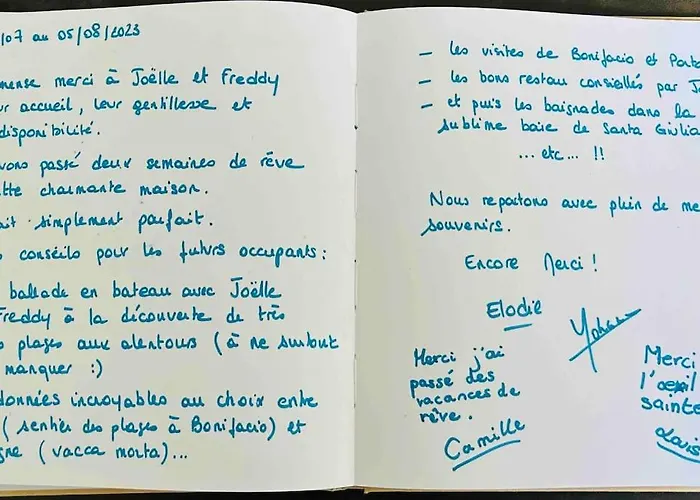 /07 au 05/08/2023
mense merci à Joëlle et Freddy
ur accueil, leur gentillesse et
disponibilité.
vons passé deux semaines de rêve
tte charmante maison.
ait simplement parfait.
s conseils pour les futurs occupants :
ballade en bateau avec Joëlle
Freddy à la découverte de très
s plages aux alentours (à ne surtout
manquer :)
données incroyables au choix entre
(sentier des plages à Bonifacio) et
gne (vacca morta)...
– les visites de Bonifacio et Porto
– les bons restau consiellés par J
– et puis les baignades dans la
sublime baie de Santa Giulia
... etc... !!
Nous repartons avec plein de me
souvenirs.
Encore Merci !
Elodie
Merci j'ai
passé des
vacances de
rêve.
Camille
Merci
sainte